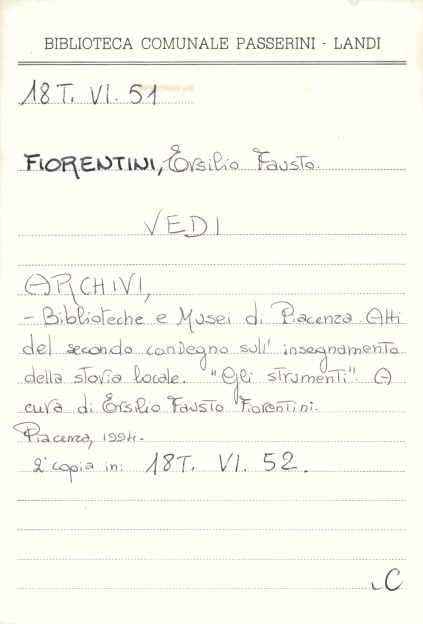 BIBLIOTECA COMUNALE PASSERINI - LANDI
18T. VI. 51
FIORENTINI, Ersilio Fausto.
VEDI
ARCHIVI,
- Biblioteche e Musei di Piacenza. Atti
del secondo convegno sull' insegnamento
della storia locale. "Gli strumenti". A
cura di Ersilio Fausto Fiorentini.
Piacenza, 1994.
2ª copia in: 18T. VI. 52.
C